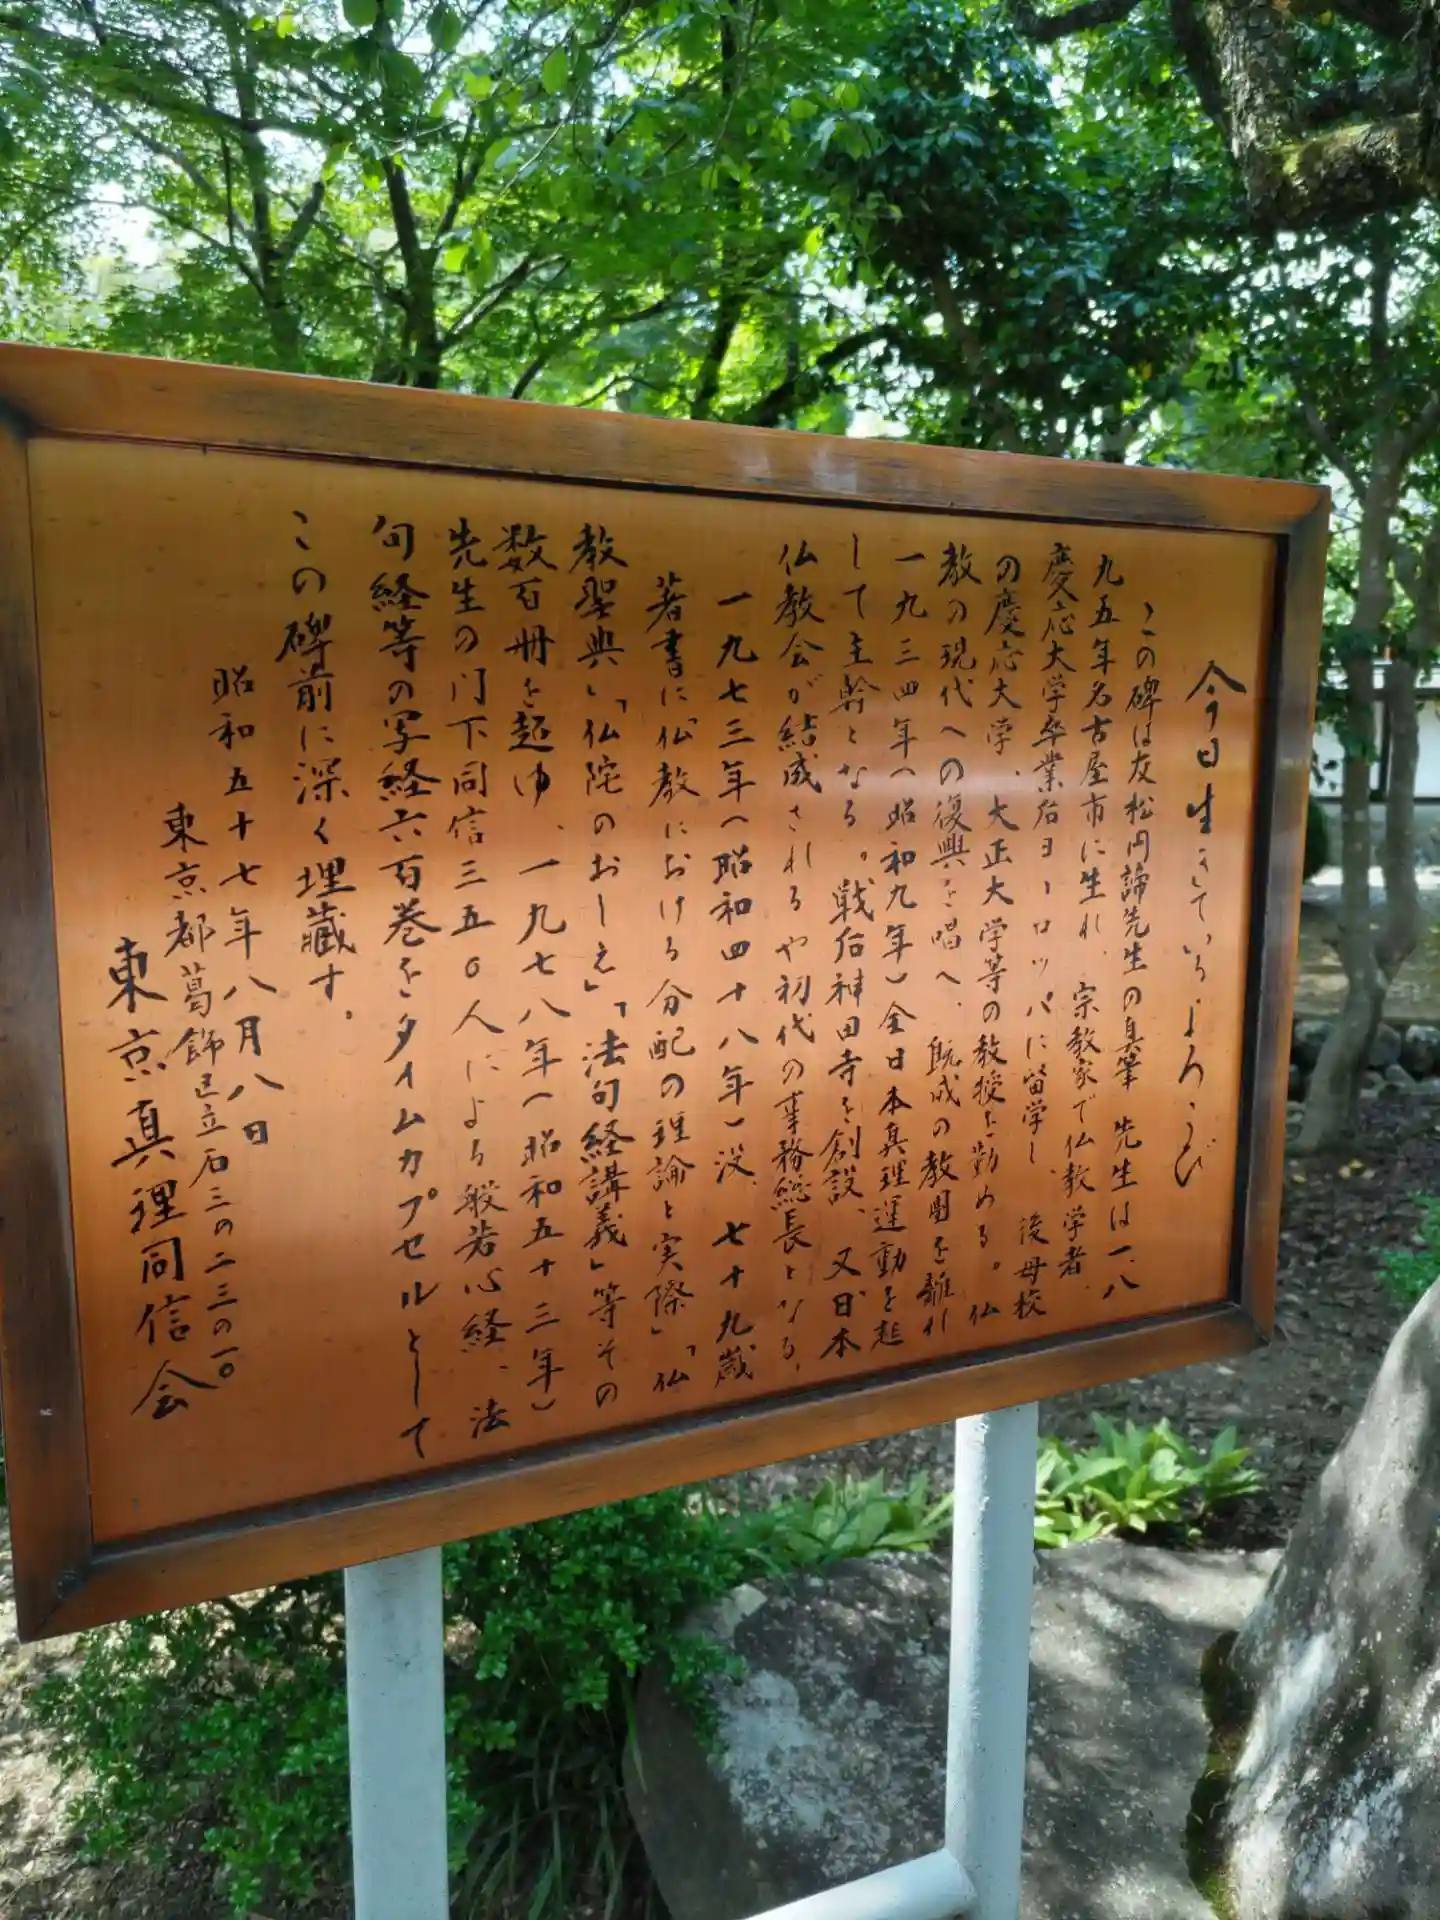 今日生きているよろこび
この碑は友松円諦先生の真筆 先生は一八
九五年名古屋市に生れ、宗教家で仏教学者、
慶応大学卒業后ヨーロッパに留学し、後母校
の慶応大学、大正大学等の教授を勤める。仏
教の現代への復興を唱へ、既成の教団を離れ
一九三四年(昭和九年)全日本真理運動を起
して主幹となる。戦后神田寺を創設、又日本
仏教会が結成されるや初代の事務総長となる、
一九七三年(昭和四十八年)没、七十九歳
著書に仏教における分配の理論と実際」「仏
教聖典」「仏陀のおしえ」「法句経講義」等その
数百冊を超ゆ、一九七八年(昭和五十三年)
先生の門下同信三五〇人による般若心経、法
句経等の写経六百巻をタイムカプセルとして
この碑前に深く埋蔵す。
昭和五十七年八月八日
東京都葛飾区立石三の二三の一〇
東京真理同信会